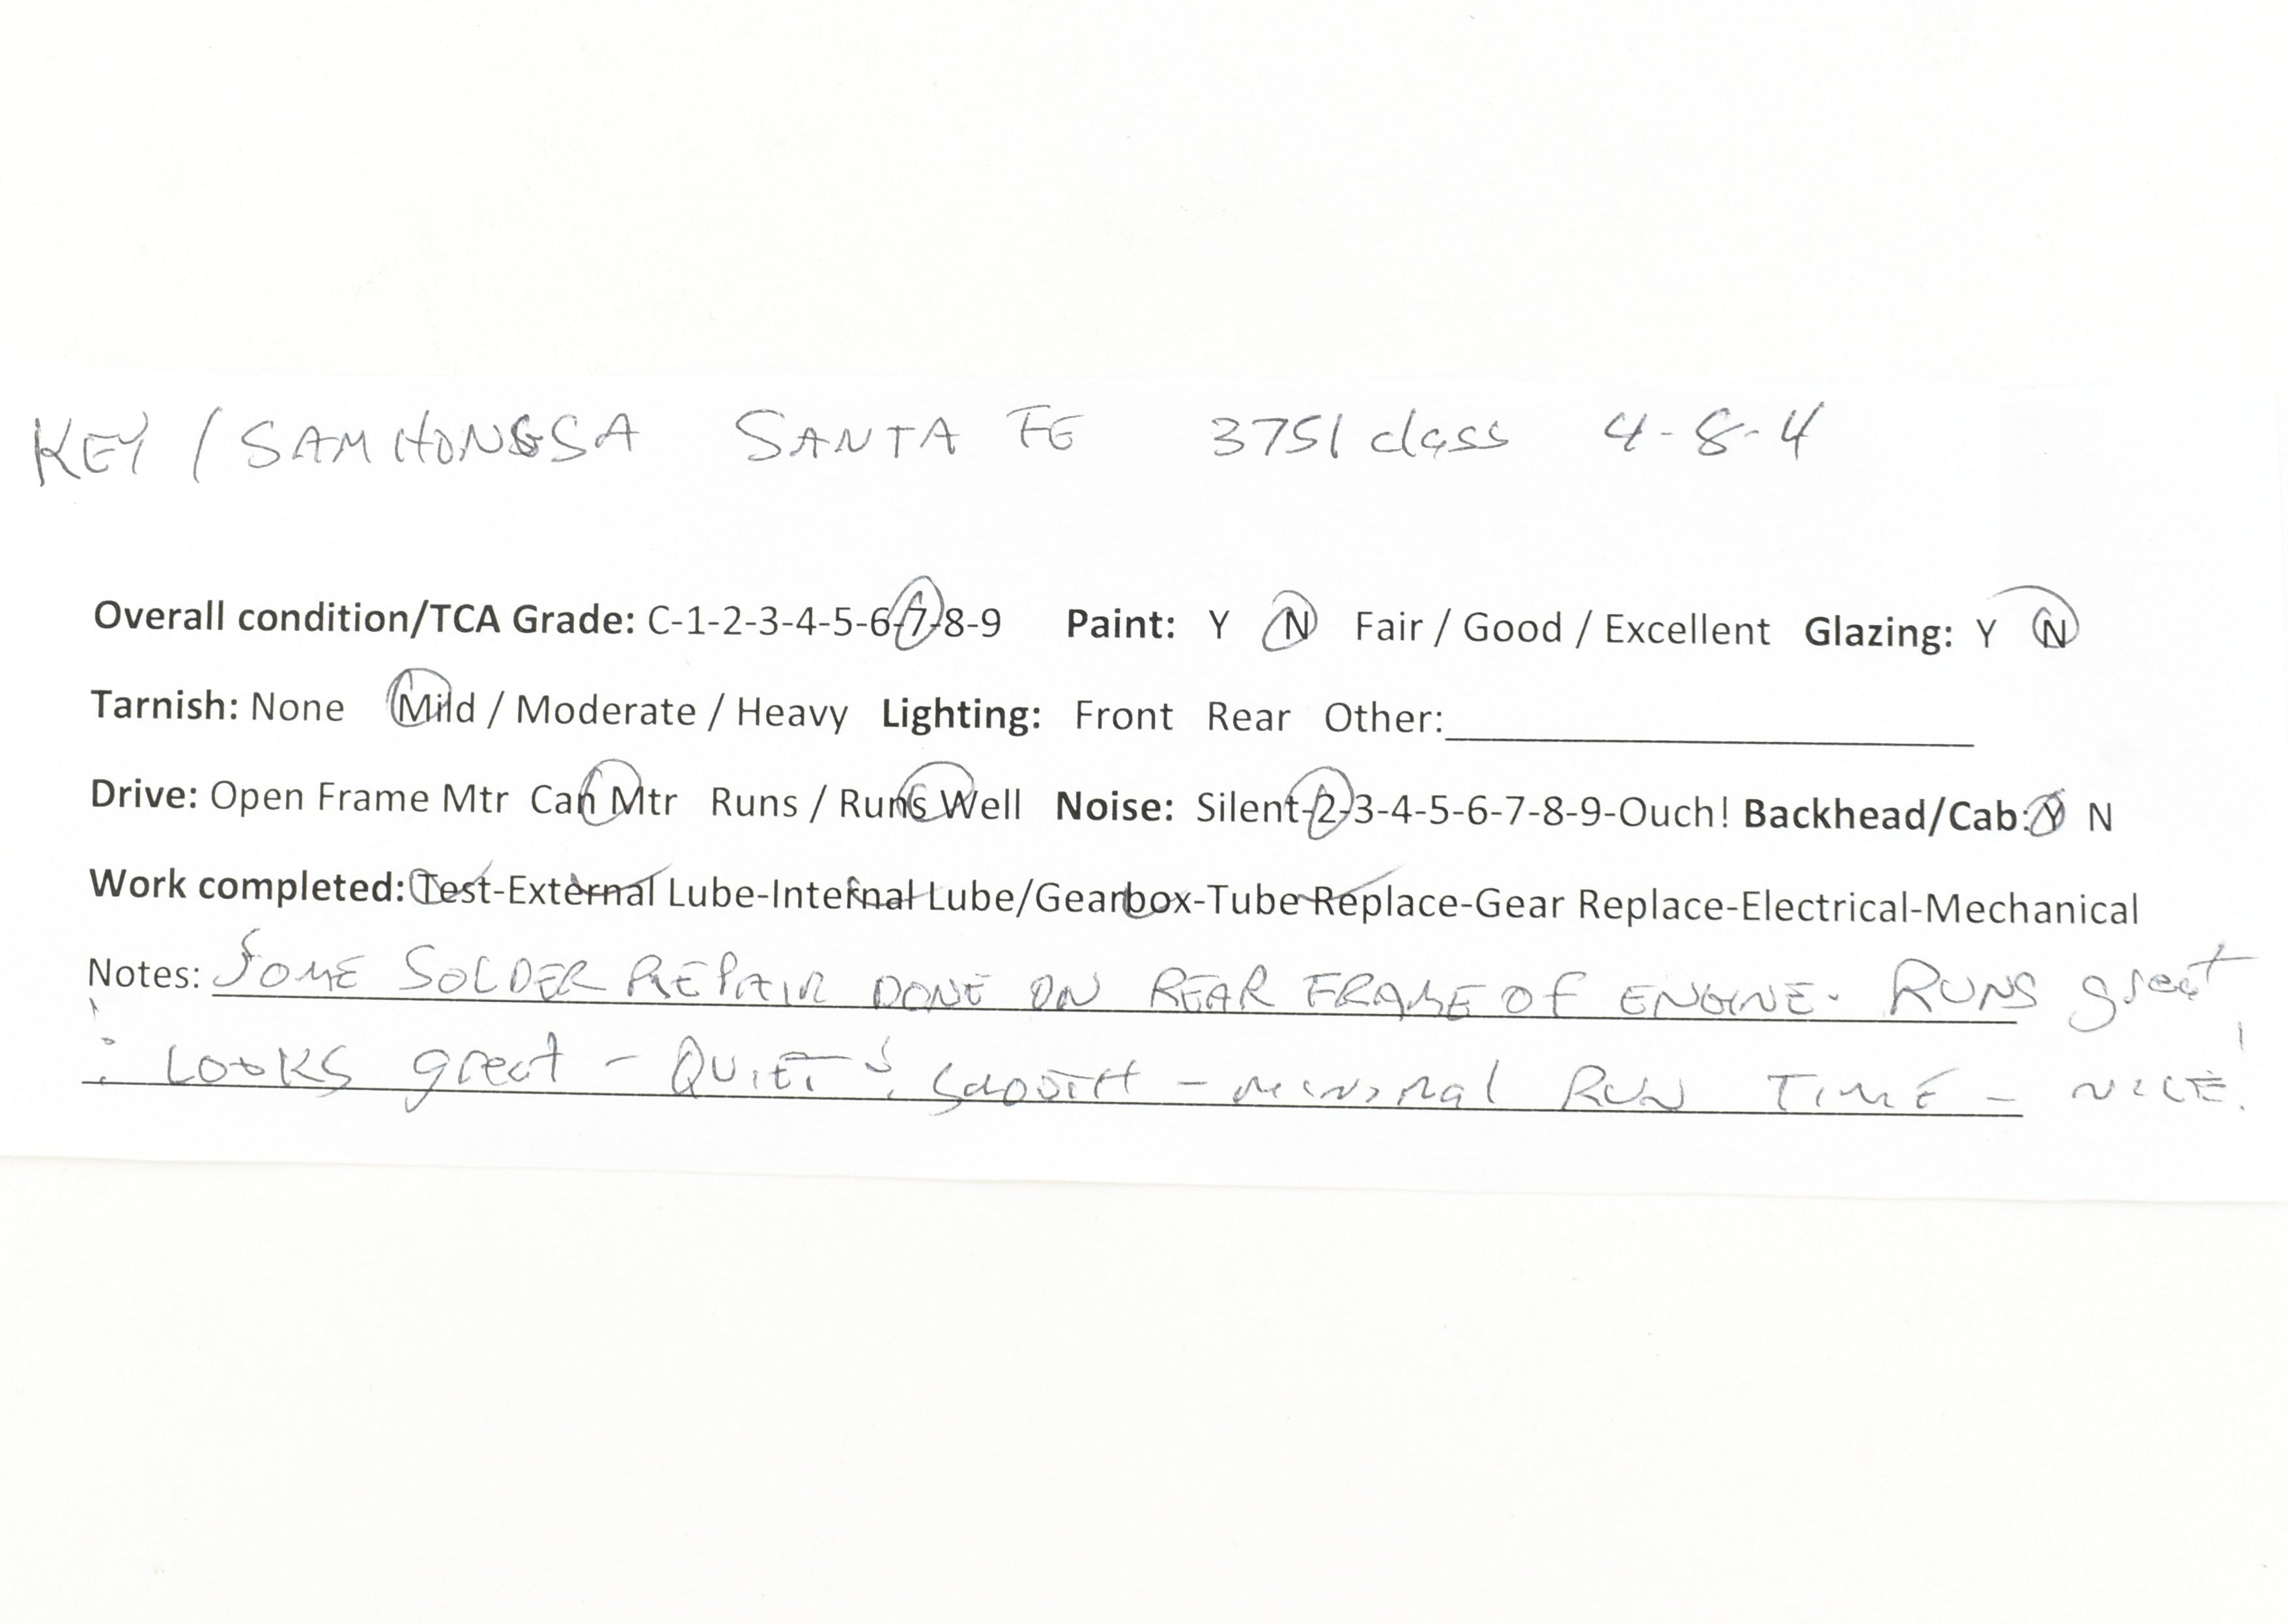 KEY / SAMHONGSA SANTA FE 3751 class 4-8-4
Overall condition/TCA Grade: C-1-2-3-4-5-6-7-8-9 Paint: Y N Fair / Good / Excellent Glazing: Y N
Tarnish: None Mild / Moderate / Heavy Lighting: Front Rear Other:
Drive: Open Frame Mtr Can Mtr Runs / Runs Well Noise: Silent-2-3-4-5-6-7-8-9-Ouch! Backhead/Cab: Y N
Work completed: Test-External Lube-Internal Lube/Gearbox-Tube Replace-Gear Replace-Electrical-Mechanical
Notes: SOME SOLDER REPAIR DONE ON REAR FRAME OF ENGINE. RUNS great
& LOOKS great - QUIET & SMOOTH - minimal RUN TIME - NICE!